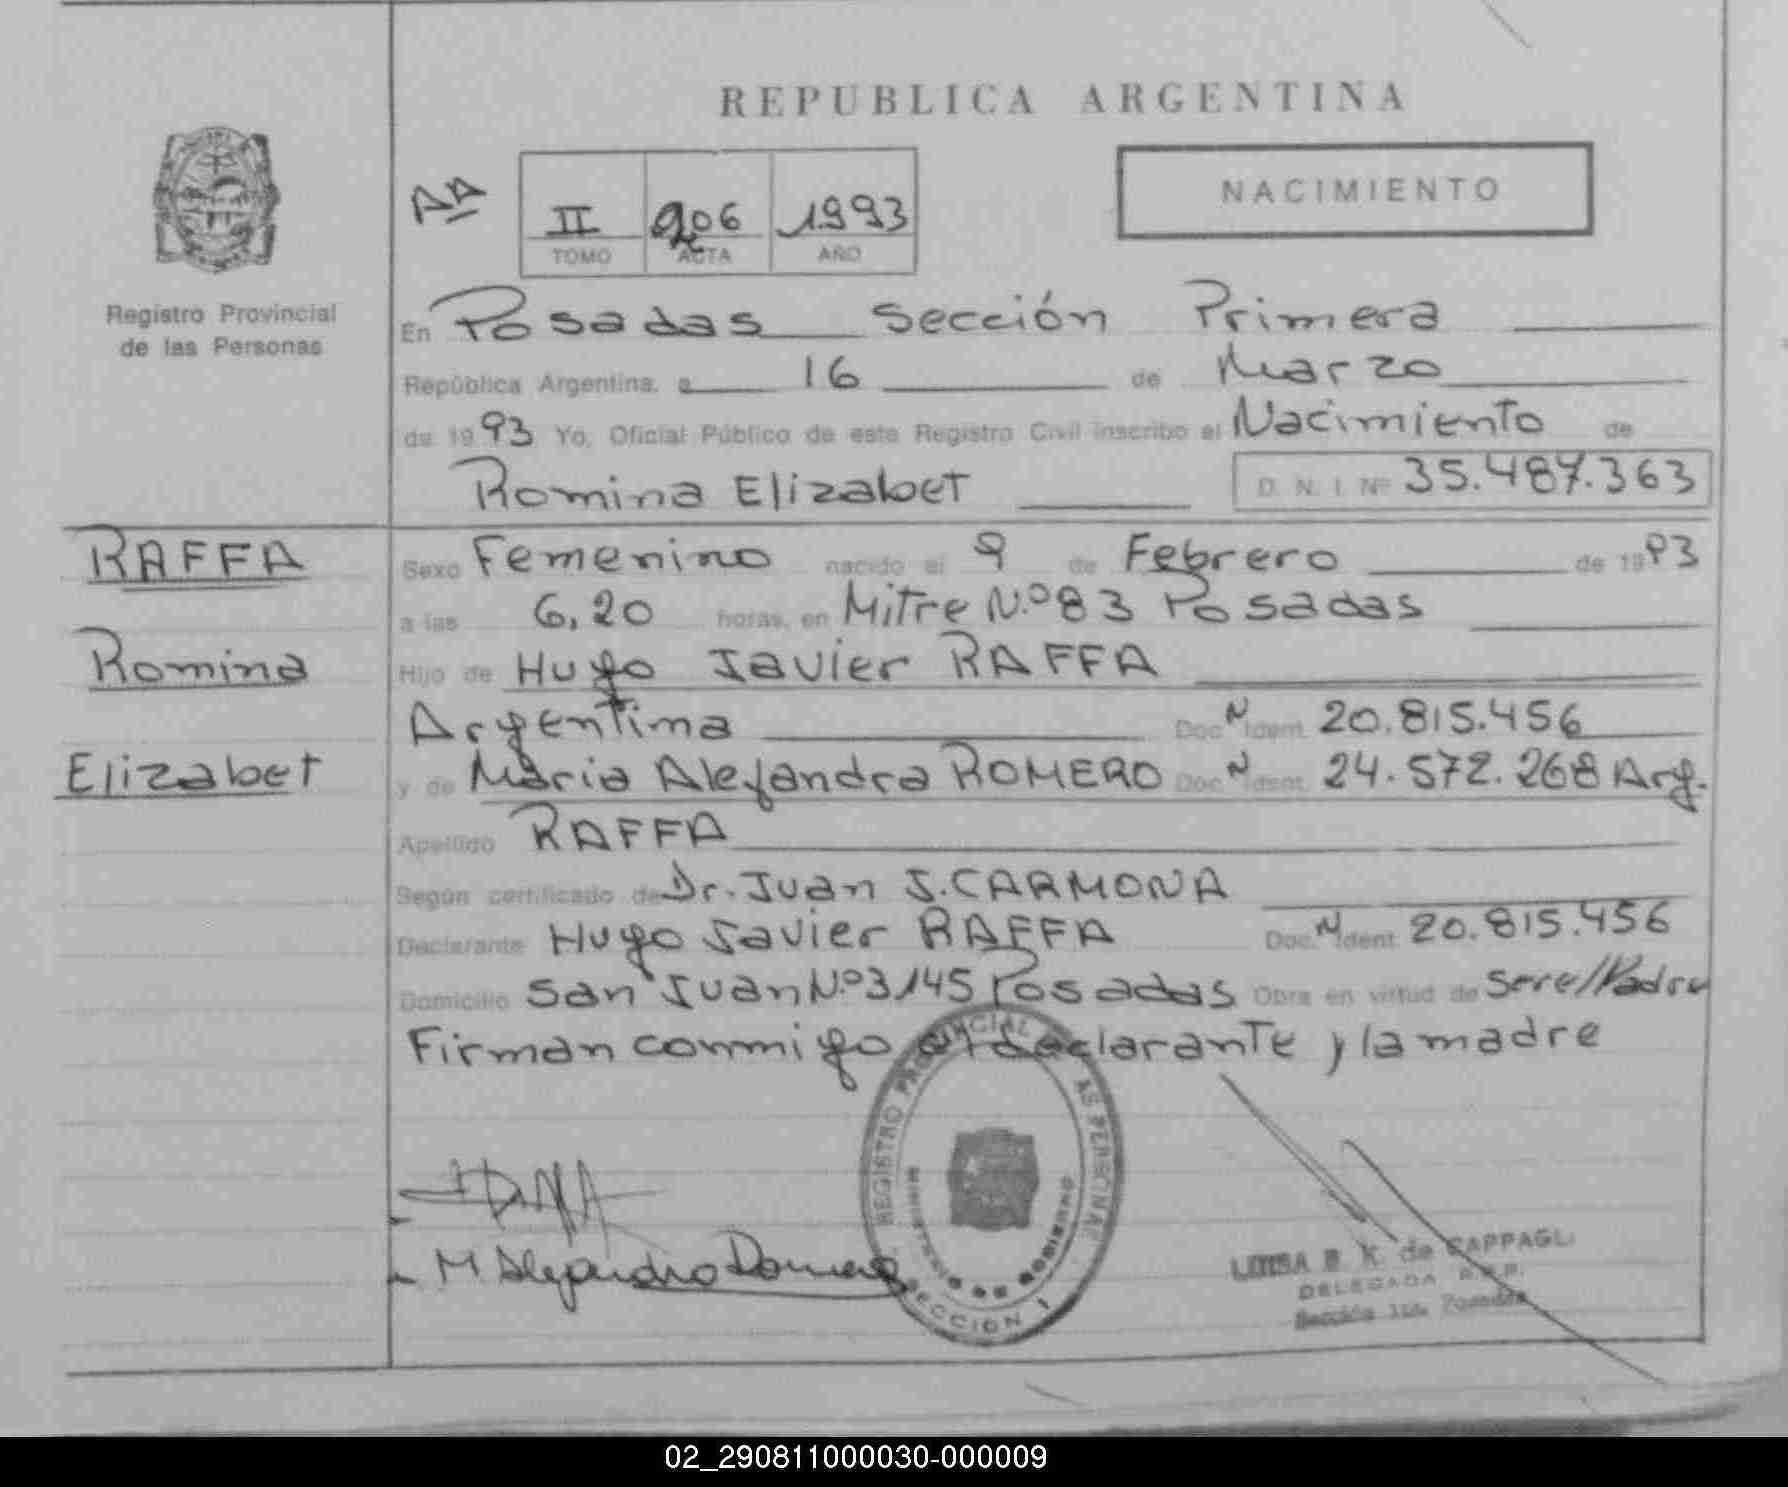 REPUBLICA ARGENTINA
NACIMIENTO
II 906 1993
TOMO ACTA AÑO
Registro Provincial
de las Personas
En Posadas Sección Primera
República Argentina, a 16 de Marzo
de 1993 Yo, Oficial Público de este Registro Civil inscribo el Nacimiento de
Romina Elizabet D. N. I. Nº 35.487.363
RAFFA
Romina
Elizabet
Sexo Femenino nacido el 9 de Febrero de 1993
a las 6,20 horas, en Mitre N.º 83 Posadas
Hijo de Hugo Javier RAFFA
Argentina Doc N Ident. 20.815.456
y de Maria Alejandra ROMERO Doc N Ident. 24.572.268 Arg.
Apellido RAFFA
Según certificado de Dr. Juan J. CARMONA
Declarante Hugo Javier RAFFA Doc. N Ident 20.815.456
Domicilio San Juan N.º 3145 Posadas Obra en virtud de Sere/Padre
Firman conmigo el declarante y la madre
REGISTRO PROVINCIAL DE LAS PERSONAS
MINISTERIO DE GOBIERNO
SECCION 1
M Alejandra Romero
LUISA B. K. de CAPPAGLI
DELEGADA R.P.P.
Sección 1ra. Posadas
02_290811000030-000009